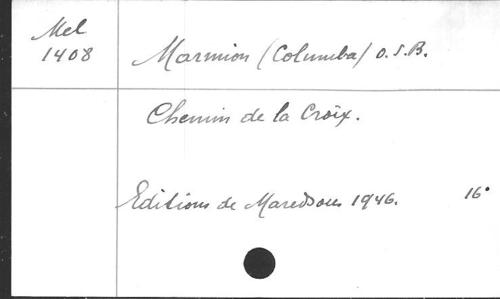 Mel
1408
Marmion (Columba) O.S.B.
Chemin de la Croix.
Editions de Maredsous 1946. 16°